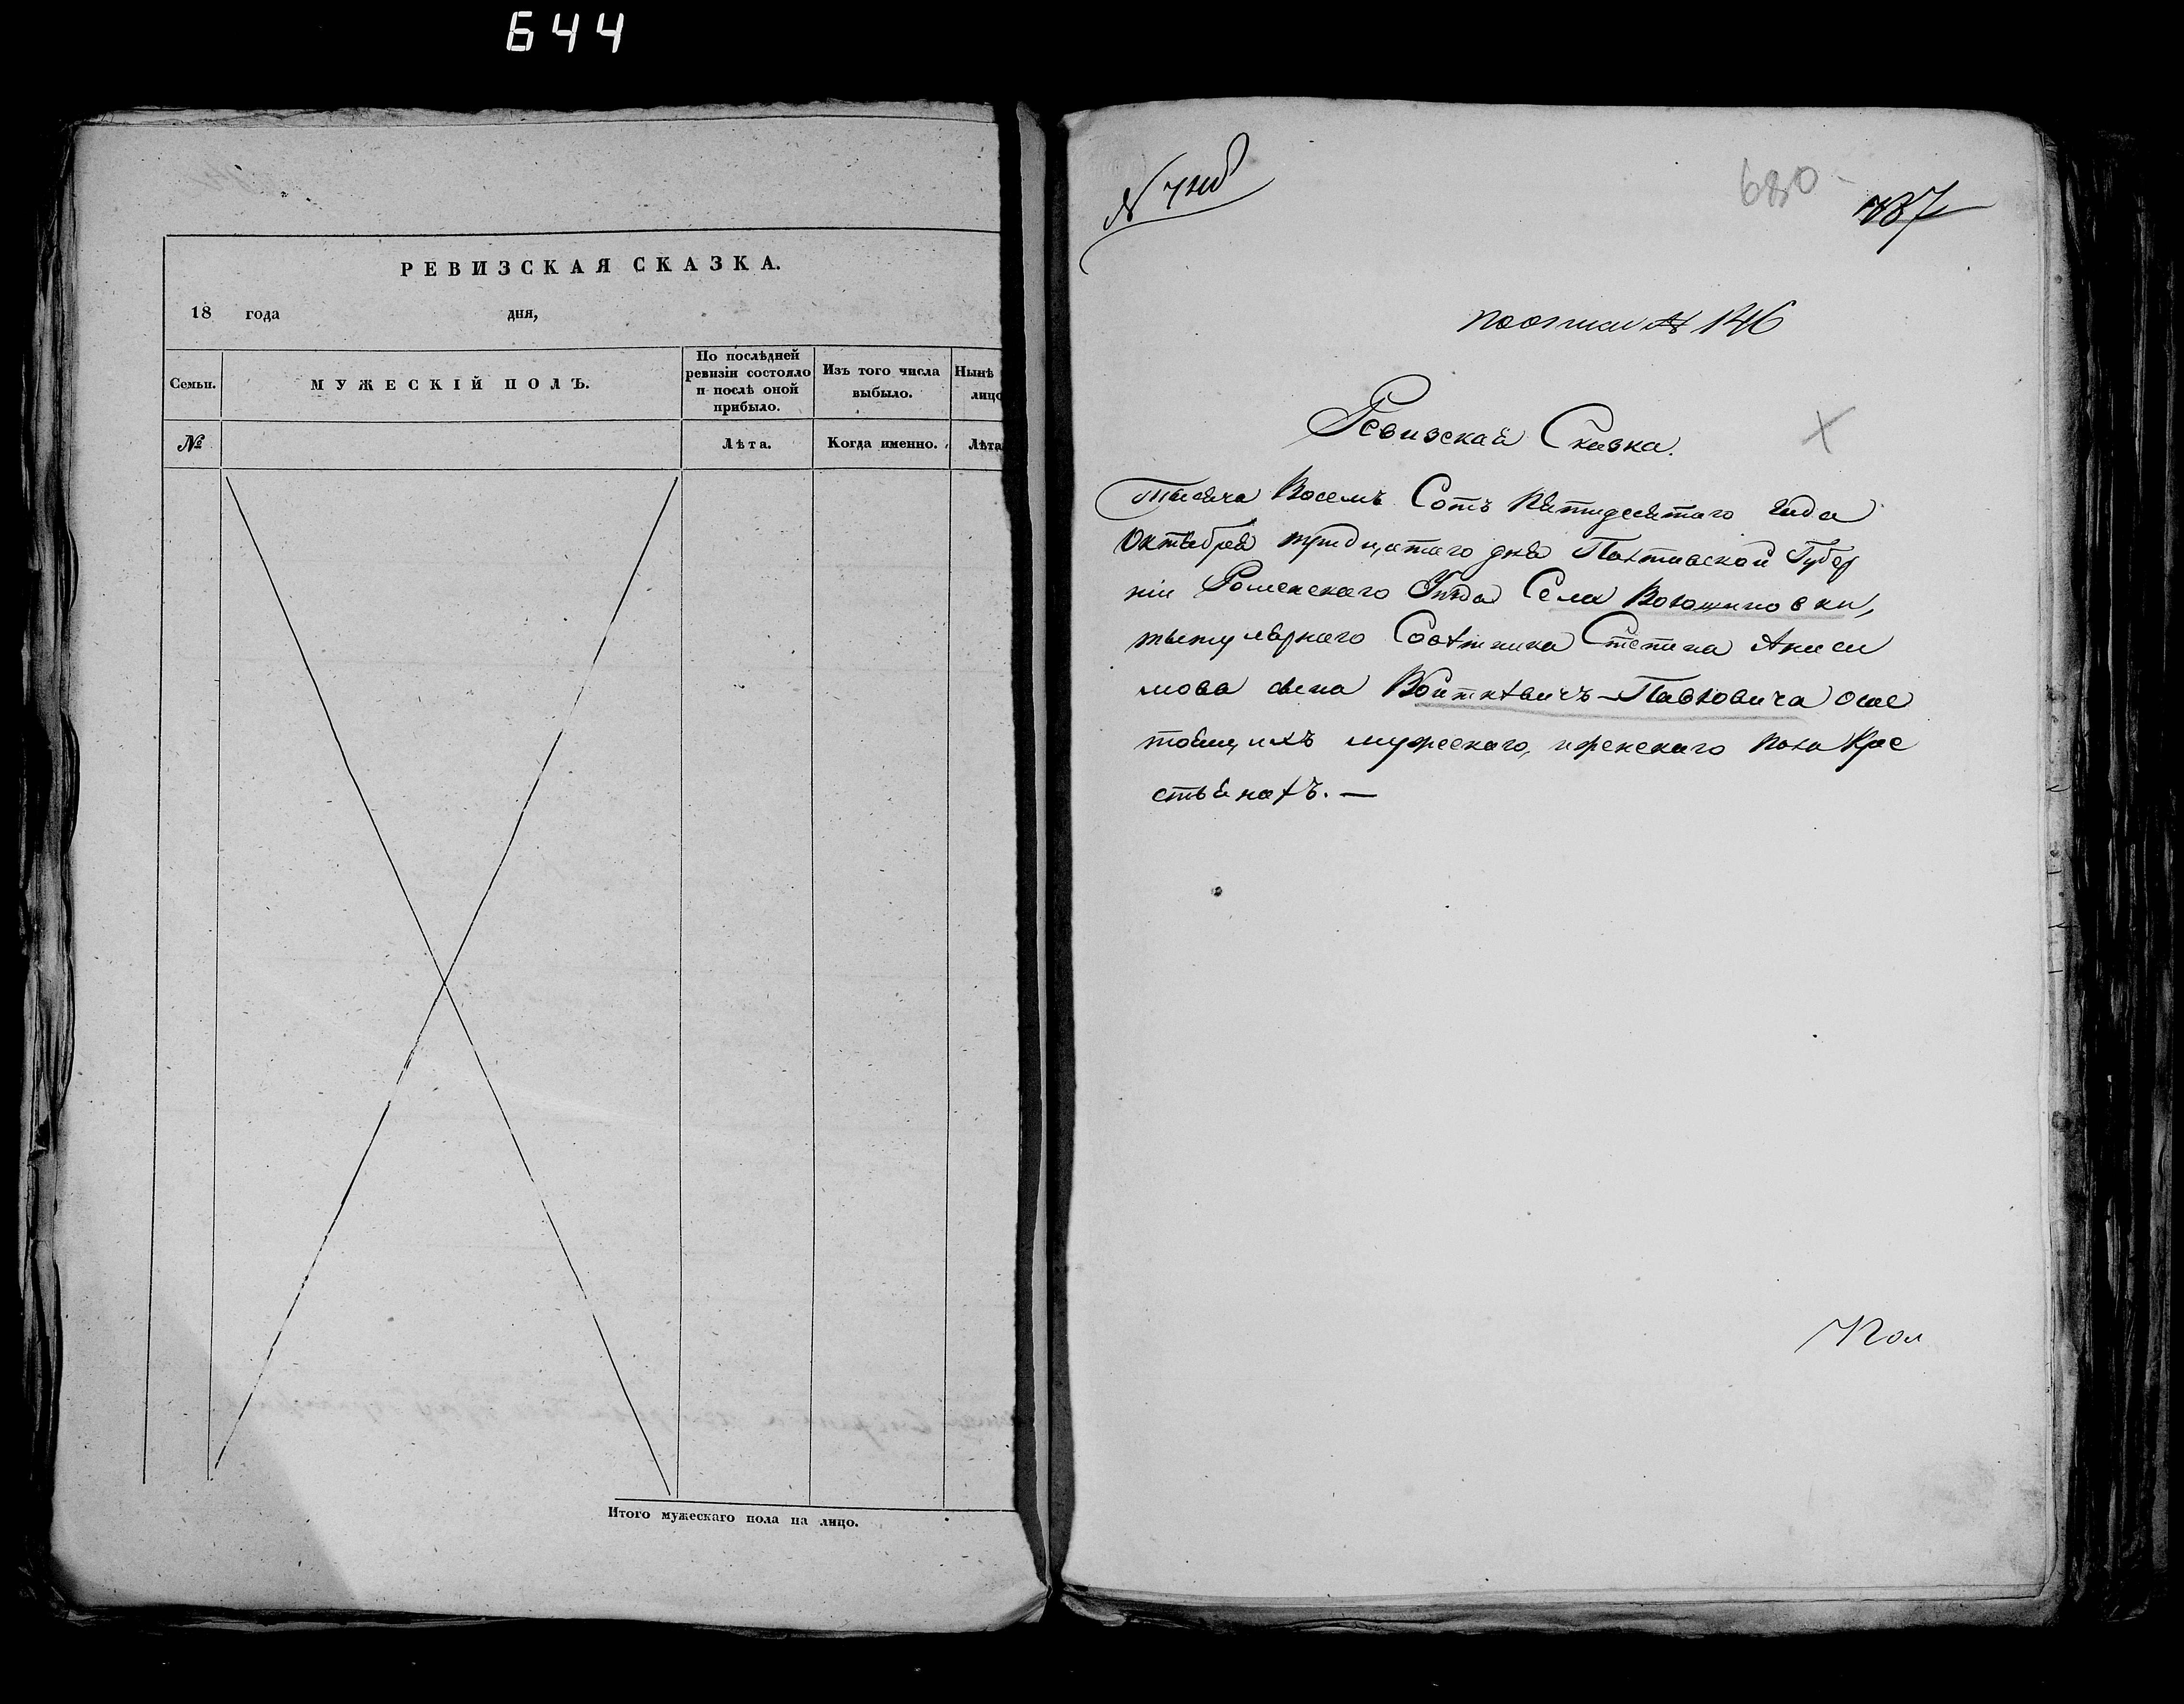 644
РЕВИЗСКАЯ СКАЗКА.
18 года дня,
Семьи.
МУЖЕСКІЙ ПОЛЪ.
По послѣдней
ревизіи состояло
и послѣ оной
прибыло.
Изъ того числа
выбыло.
Нынѣ
лицо
№
Лѣта.
Когда именно.
Лѣта
Итого мужескаго пола на лицо.
680
787
по описи № 146
Ревизская Сказка.
Тысяча Восемъ Сотъ Пятидесятаго Года
Октября тридцатаго дня Полтавской Губер
ніи Роменскаго Уѣзда Села Волошиновки,
тытулярнаго Совѣтника Степана Аниси
мова сына Войткевичъ-Павловича о сос
тоящихъ мужескаго, и женскаго пола Крес
стьянахъ. —